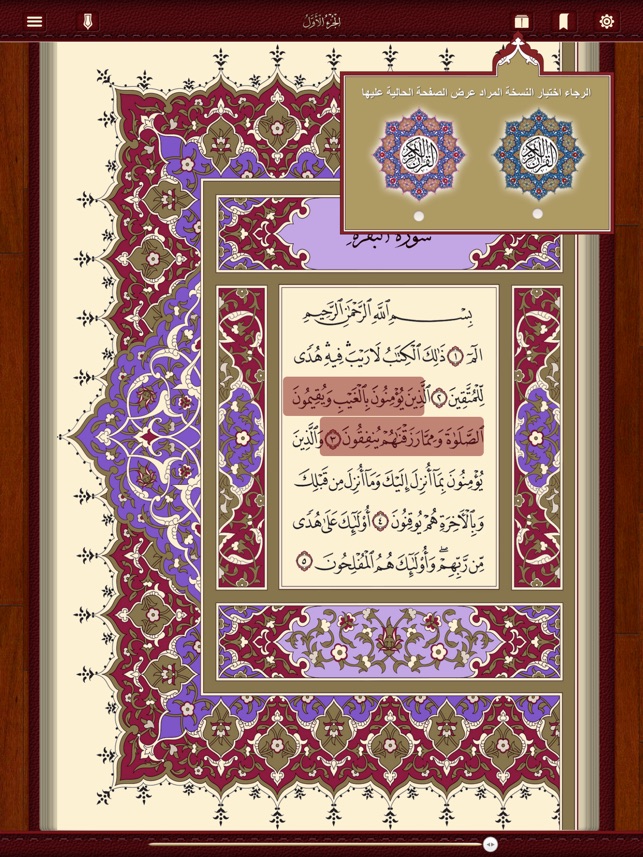 الجزء الأول
الرجاء اختيار النسخة المراد عرض الصفحة الحالية عليها
القرآن الكريم
القرآن الكريم
سورة البقرة
بِسْمِ ٱللَّهِ ٱلرَّحْمَٰنِ ٱلرَّحِيمِ
الٓمٓ ١ ذَٰلِكَ ٱلْكِتَٰبُ لَا رَيْبَ ۛ فِيهِ ۛ هُدًى
لِّلْمُتَّقِينَ ٢ ٱلَّذِينَ يُؤْمِنُونَ بِٱلْغَيْبِ وَيُقِيمُونَ
ٱلصَّلَوٰةَ وَمِمَّا رَزَقْنَٰهُمْ يُنفِقُونَ ٣ وَٱلَّذِينَ
يُؤْمِنُونَ بِمَآ أُنزِلَ إِلَيْكَ وَمَآ أُنزِلَ مِن قَبْلِكَ
وَبِٱلْءَاخِرَةِ هُمْ يُوقِنُونَ ٤ أُو۟لَٰٓئِكَ عَلَىٰ هُدًى
مِّن رَّبِّهِمْ ۖ وَأُو۟لَٰٓئِكَ هُمُ ٱلْمُفْلِحُونَ ٥